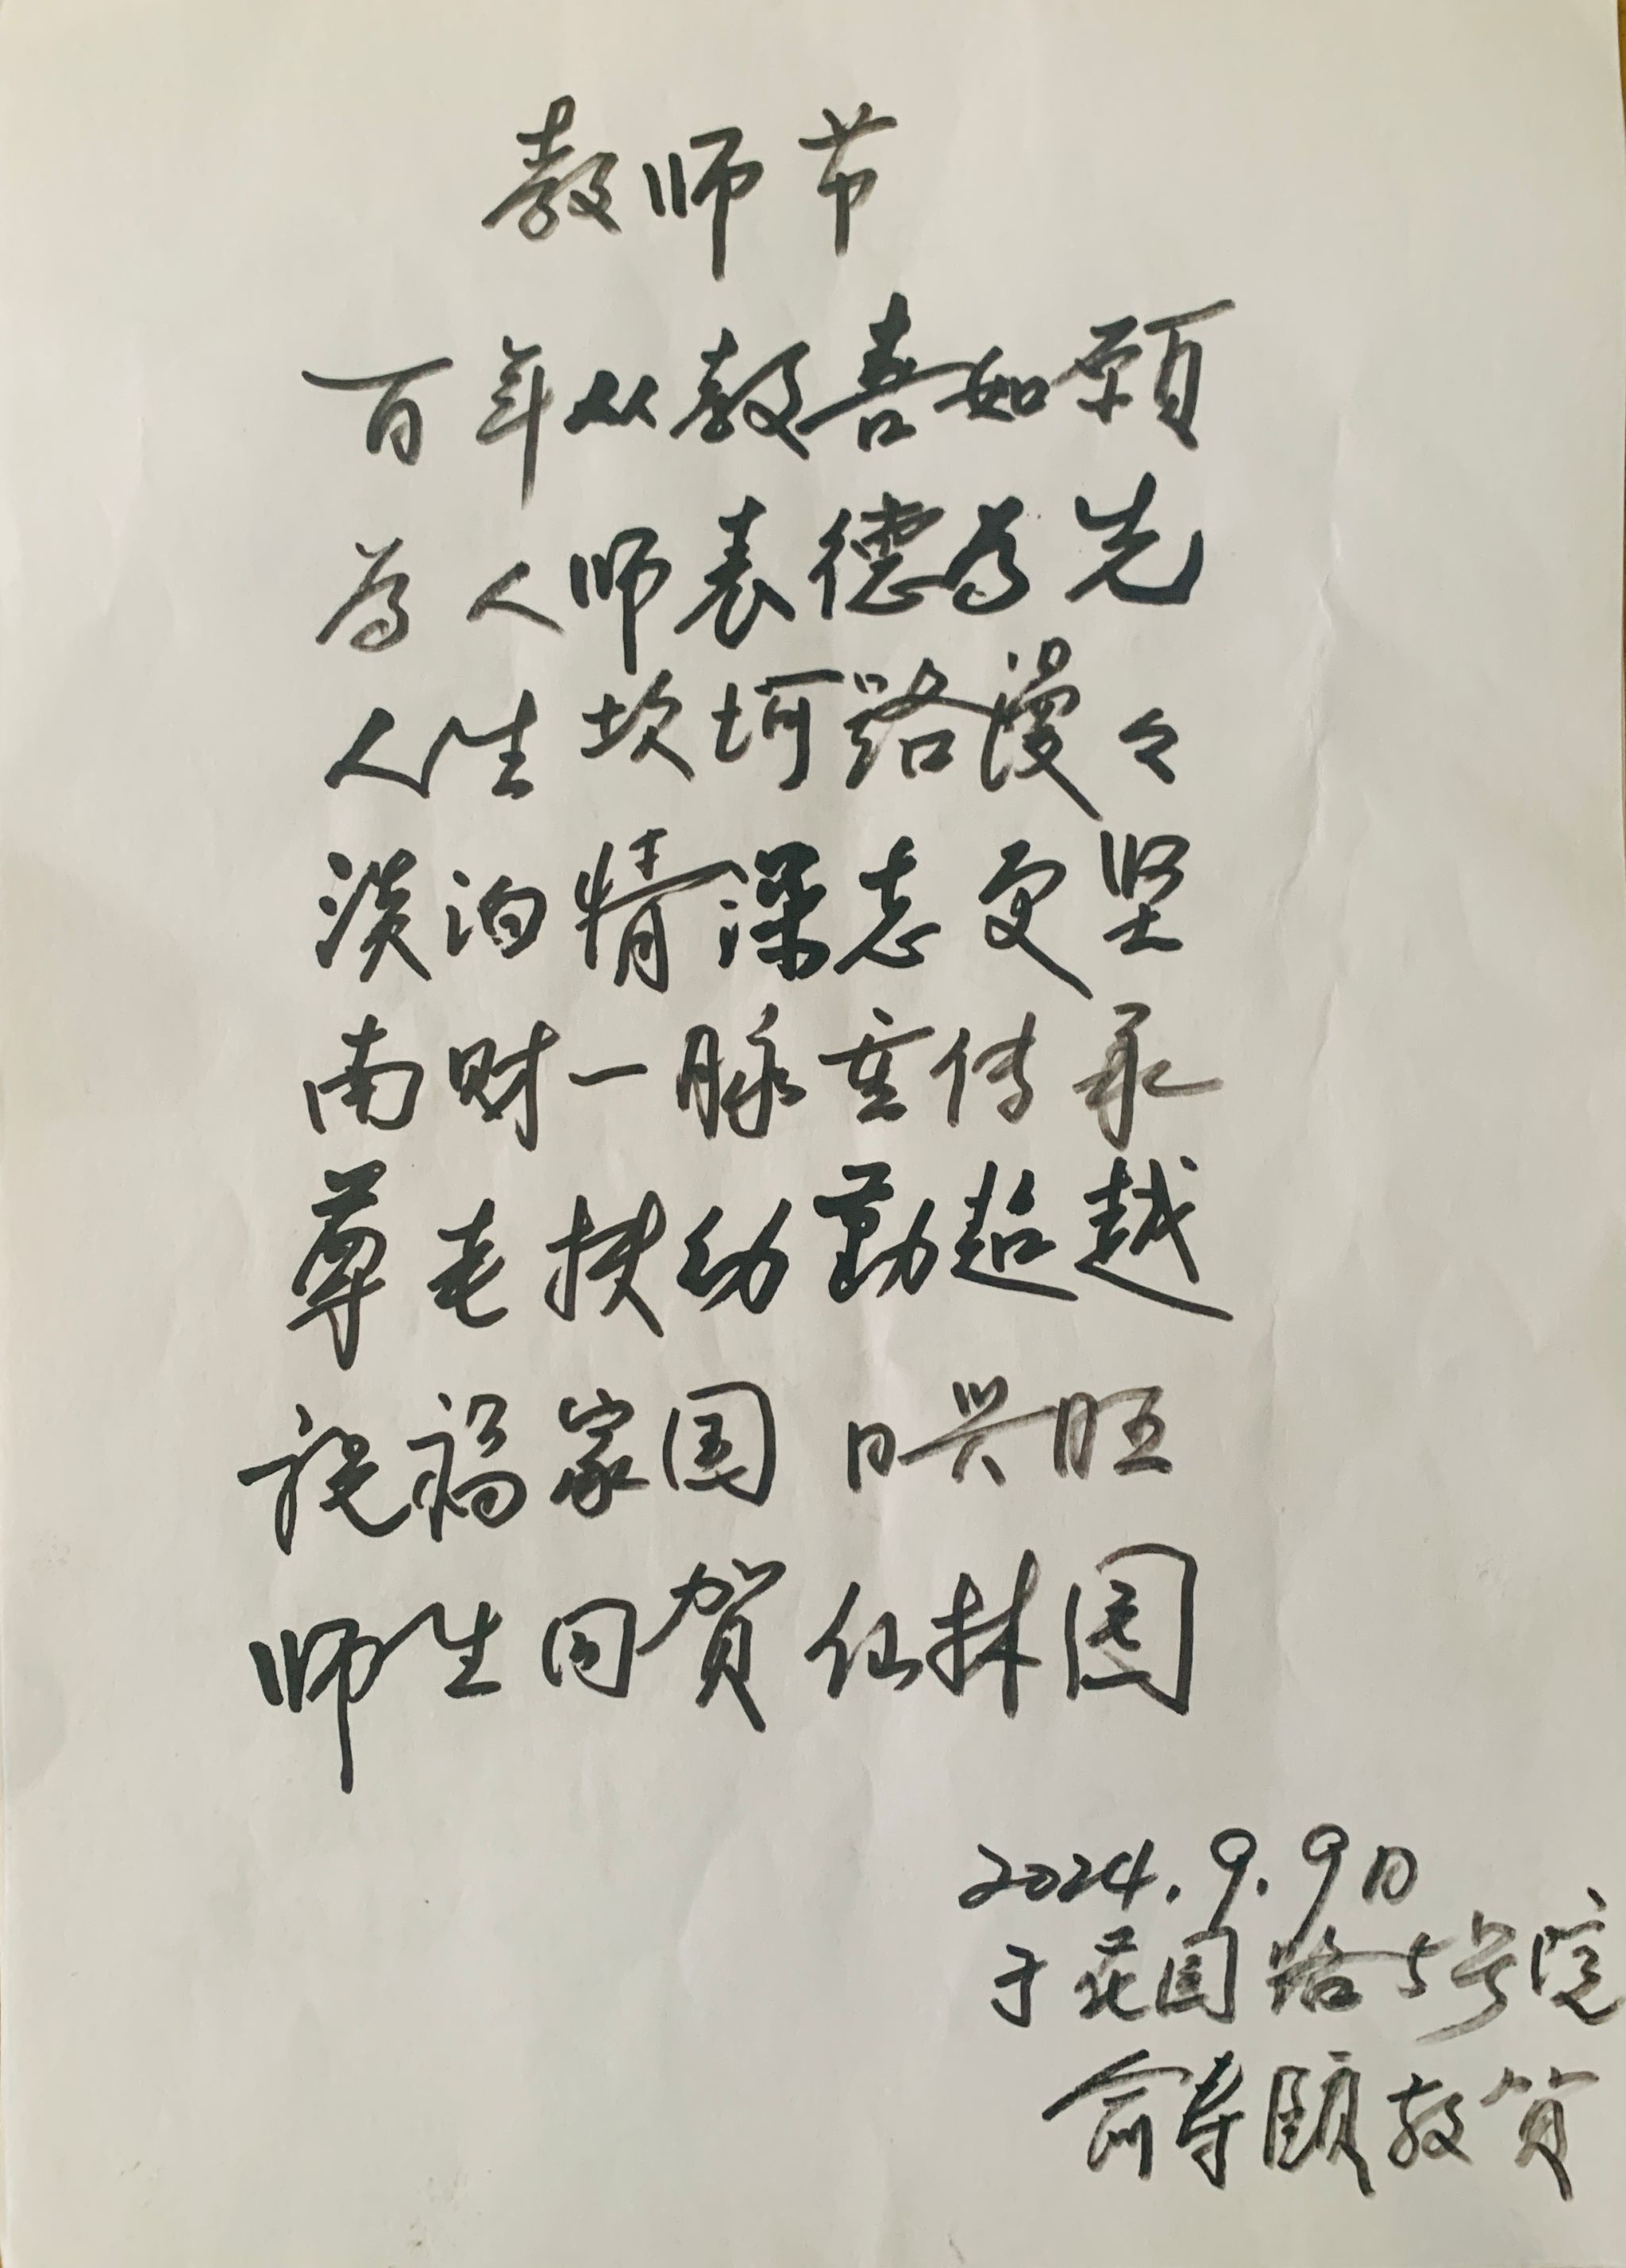 教师节
百年从教喜如愿
为人师表德为先
人生坎坷路漫々
淡泊情深志更坚
南财一脉重传承
尊老扶幼勤超越
祝福家国日兴旺
师生同贺仙林园
2024.9.9日
于花园路5号院
俞寿颐敬贺